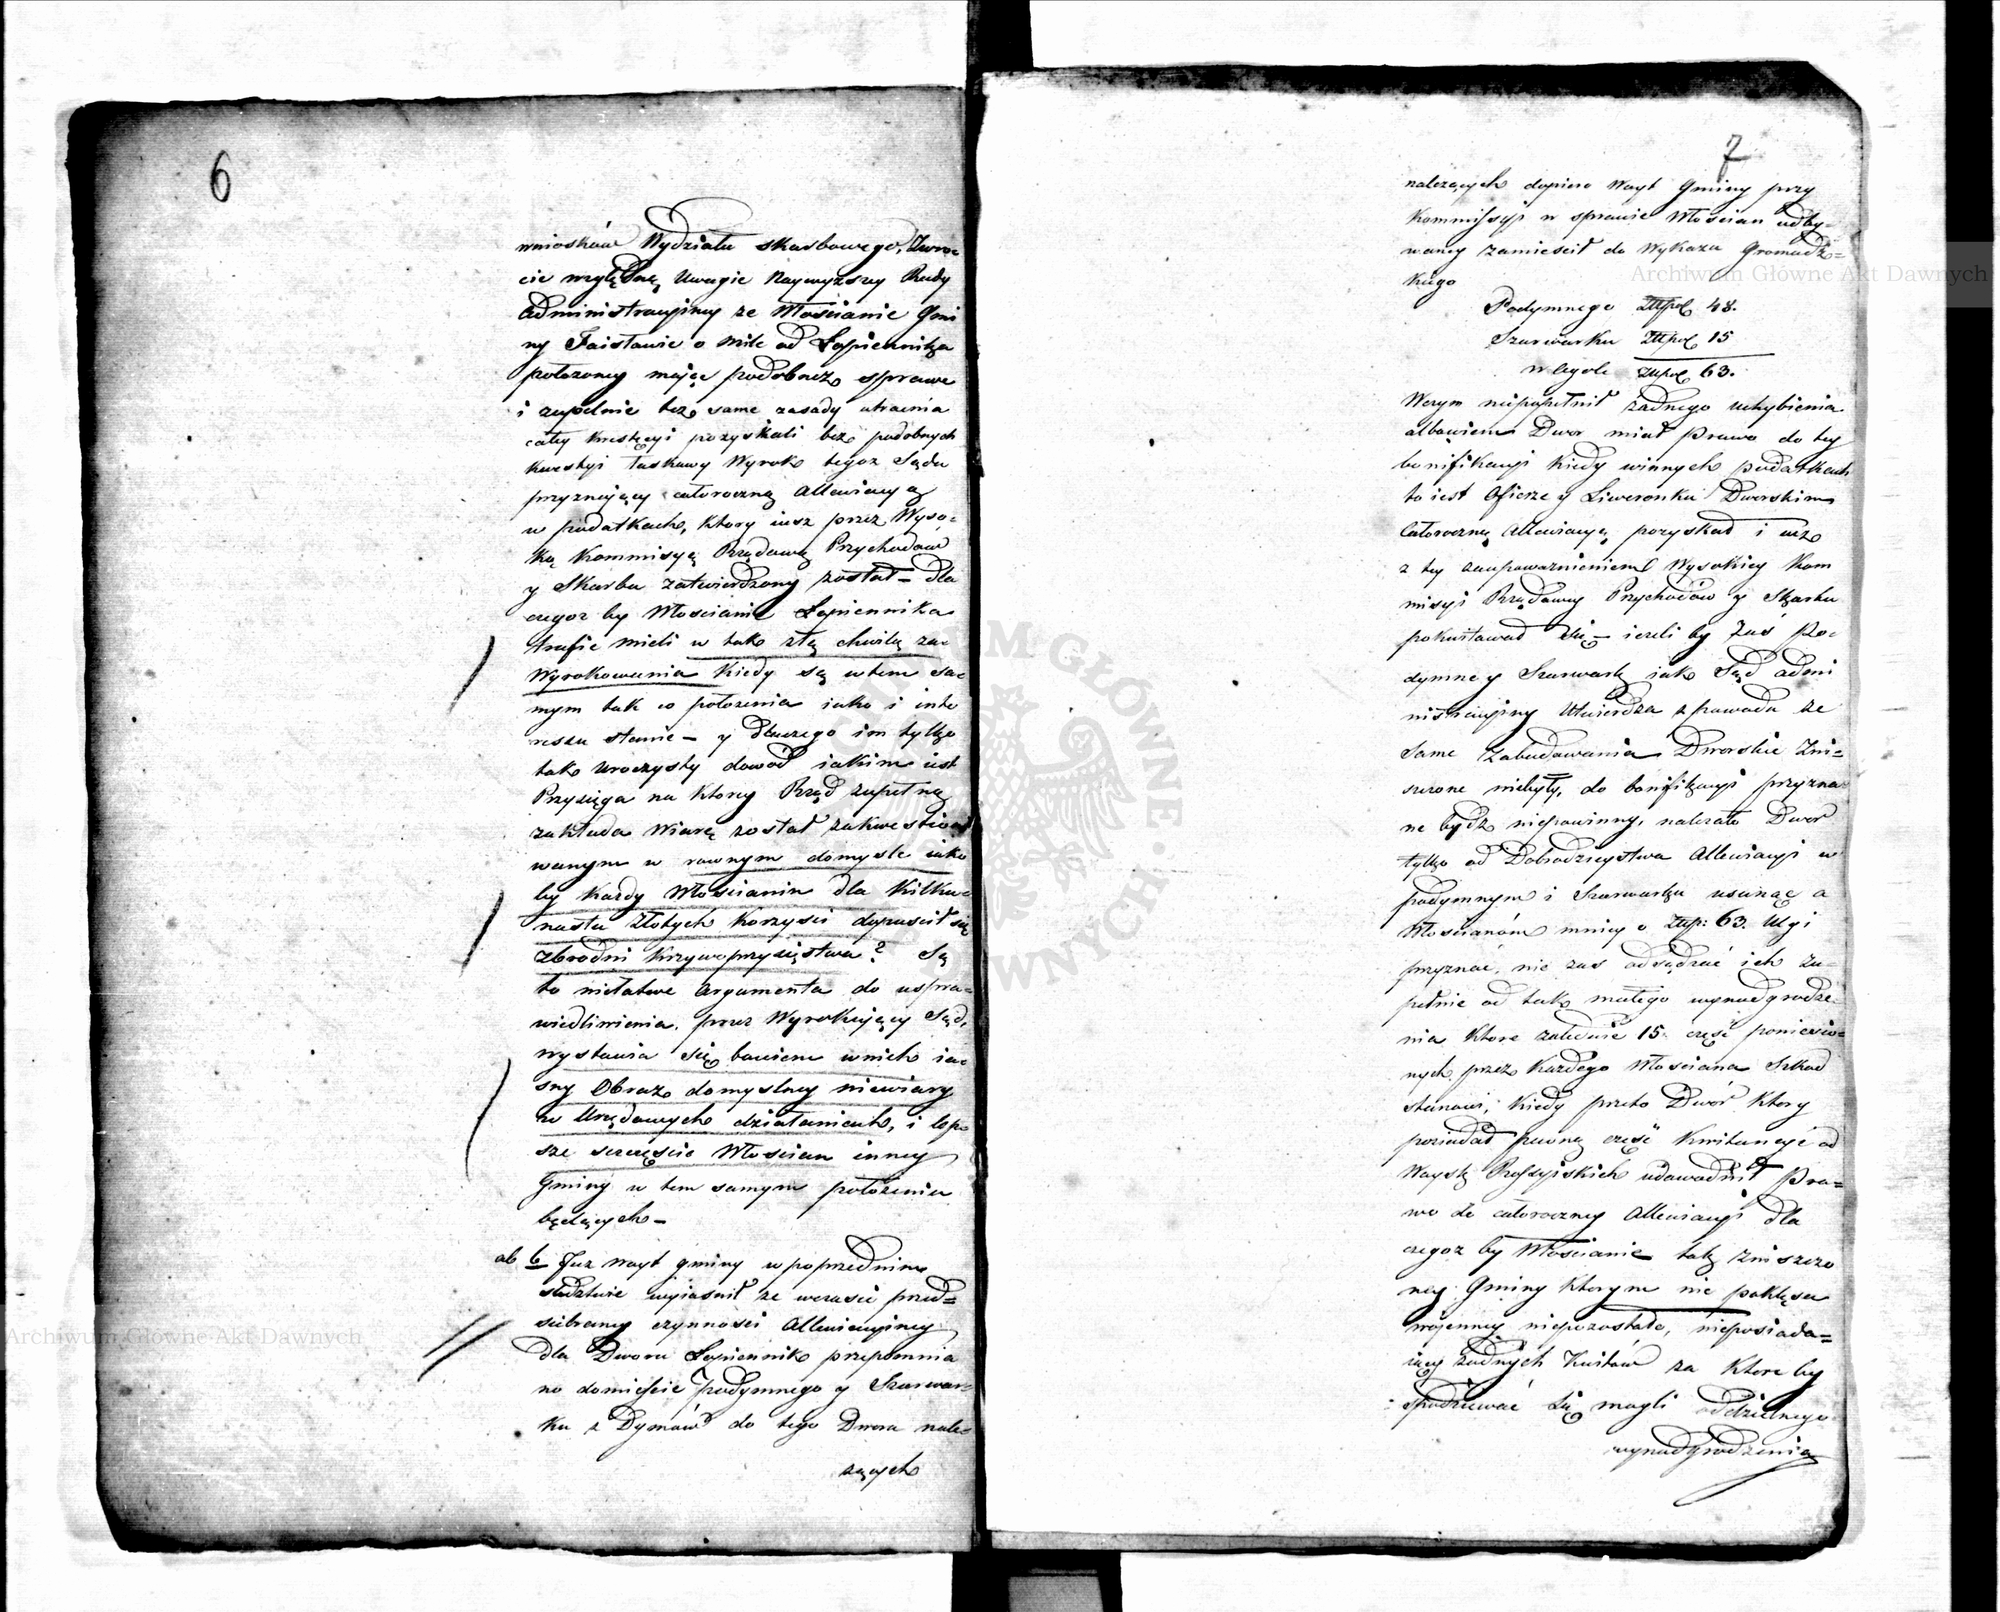 6
wniosków Wydziału skarbowego, Zwro-
cie względną Uwagie Naywyższey Rady
Administracyiney ze Włoscianie Gmi
ny Faisławic o mile od Łopiennika
położoney maiąc podobnéż sprawe
i zupełnie też same zasady utracenia
całey kwestyi pozyskali bez podobnych
kwestyi łaskawy Wyrok tegoz Sądu
przyznaiący całoroczną Allewiacyą
w podatkach, który iusz przez Wyso-
ką Kommisyą Rządową Przychodów
y Skarbu zatwierdzony został – dla
czegoz by Włoscianie Łopiennika
trafic mieli w tak złą chwilę za-
Wyrokowania kiedy są w tem sa-
mym tak co położenia iako i inte
ressu stanie – y dlaczego im tylko
tak uroczysty dowód iakim iest
Przysięga na którey Rząd zupełną
zakłada wiarę został zakwestio-
wanym w rownym domysle iako
by każdy Włoscianin dla kilku-
nastu złotych korzysci dopuscił się
zbrodni krzywoprzysięstwa? Są
to niełatwe argumenta do uspra-
wiedliwienia przez Wyrokuiący Sąd,
wystawia się bowiem w nich ia-
sny Obraz domyslney niewiary
w Urzędowych działaniach, i lep-
sze szczęście Włoscian inney
Gminy w tem samym położeniu
będących –
ab 6 Juz woyt gminy w poprzednim
sledztwie wyiasnił ze w czasie przed-
siebraney czynności Allewiacyiney
dla Dworu Łopiennik przepomnia
no domieście podymnego y Szarwar-
ku z Dymów do tego Dworu nale-
zących
7
nalezących dopiero Woyt Gminy przy
Kommissyi w sprawie Włoscian odby-
waney zamieścił do Wykazu Gromadz-
kiego
Podymnego Złtpol 48.
Szarwarku Złtpol 15
w ogole Złtpol 63.
W czym niepopełnił żadnego uchybienia
albowiem Dwor miał Prawo do tey
bonifikacyi kiedy w innych podatkach
to iest Ofierze y Liwerunku Dworskim
Całoroczną Allewiacyą pozyskał i iuż
z tey zaupoważnieniem Wysokiey Kom
misyi Rządowey Przychodów y Skarbu
pokwitował się – iezeli by Zaś Po-
dymne y Szarwark iako Sąd admi
nistracyiny Utwierdza z powodu ze
same Zabudowania Dworskie Zni-
szczone niebyły, do bonifikacyi przyzna
ne bydz niepowinny, nalezało Dwor
tylko od Dobrodzieystwa Allewiacyi w
podymnym i Szarwarku usunąc a
Włoscianóm mniey o Złtp: 63. Ulgi
przyznać, nie zas odsądzać ich zu-
pełnie od tak małego wynadgrodze-
nia ktore zaledwie 15 część poniesio-
nych przez każdego Włosciana Szkod
stanowi; kiedy przeto Dwór ktory
posiadał pewną część kwitancyi od
Woysk Rossyiskich udowodnił Pra-
wo do całoroczney Allewiacyi dla
czegoz by Włoscianie tak zniszczo
ney Gminy ktorym nic po klęsce
wojenney niepozostało, nieposiada-
iący żadnych kwitów za ktore by
spodziewać się mogli oddzielnego
wynadgrodzenia